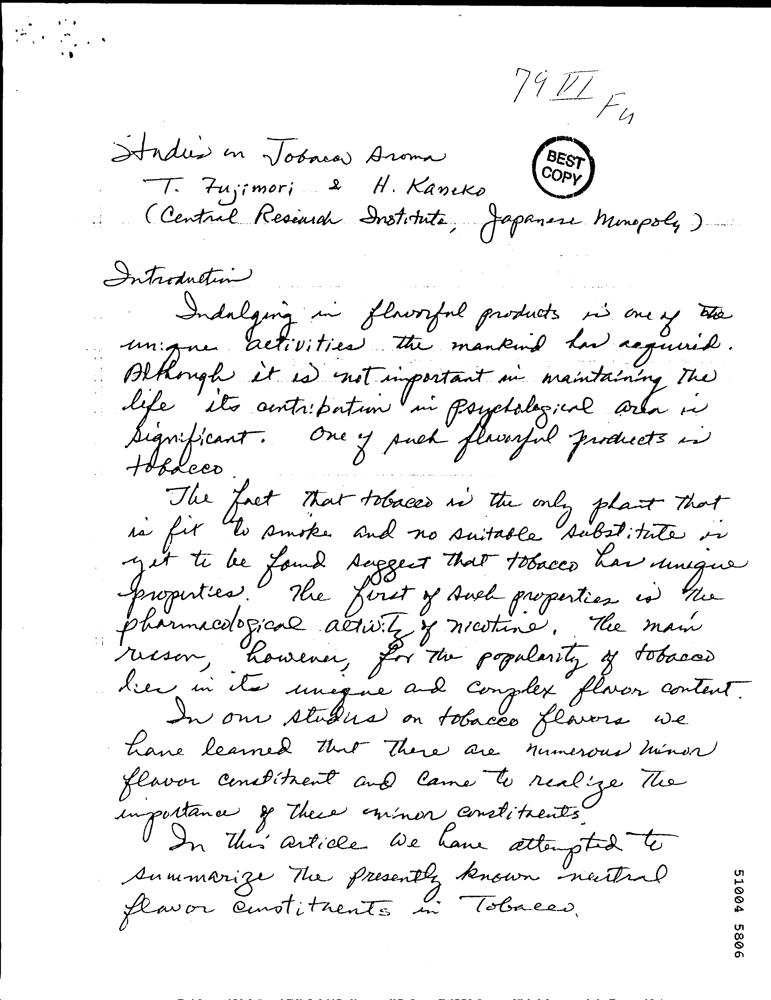 79 VI Fu
Studies on Tobacco Aroma
BEST
COPY
T. Fujimori & H. Kaneko
(Central Research Institute, Japanese Monopoly)
Introduction
Indulging in flavorful products is one of the
unique activities the mankind has acquired.
Although it is not important in maintaining the
life its contribution in psychological area is
significant. One of such flavorful products is
tobacco.
The fact that tobacco is the only plant that
is fit to smoke and no suitable substitute is
yet to be found suggest that tobacco has unique
properties. The first of such properties is the
pharmacological activity of nicotine. The main
reason, however, for the popularity of tobacco
lies in its unique and complex flavor content.
In our studies on tobacco flavors we
have learned that there are numerous minor
flavor constituent and came to realize the
importance of these minor constituents.
In this article we have attempted to
summarize the presently known neutral
flavor constituents in Tobacco.
51004 5806